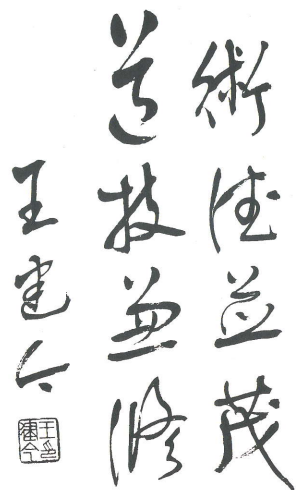 術德並茂
道技兼修
王建今
王印
建今